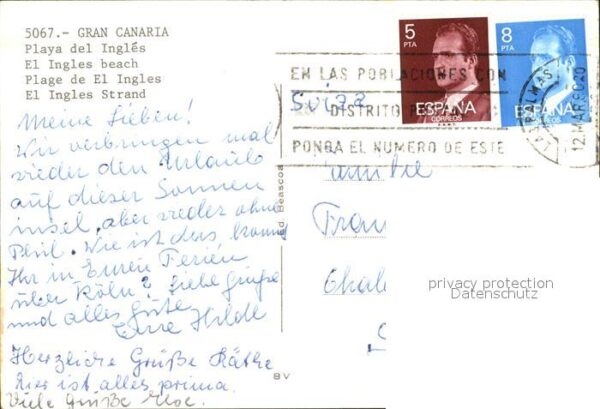 5067.- GRAN CANARIA
Playa del Inglés
El Ingles beach
Plage de El Ingles
El Ingles Strand
Meine Lieben!
Wir verbringen mal
wieder den Urlaub
auf dieser Sonnen
insel, aber wieder ohne
Phil. Wie ist das, kommt
Ihr in Euren Ferien
über Köln? Liebe Grüße
und alles Gute
Eure Hilde
Herzliche Grüße Käthe
hier ist alles prima.
Viele Grüße
Ed. Beascoa
BV
5 PTA
ESPAÑA
CORREOS
8 PTA
ESPAÑA
CORREOS
EN LAS POBLACIONES CON
DISTRITO
PONGA EL NUMERO DE ESTE
12.MAR 80 20
Suiza
Familie
Fran
Chal
privacy protection
Datenschutz